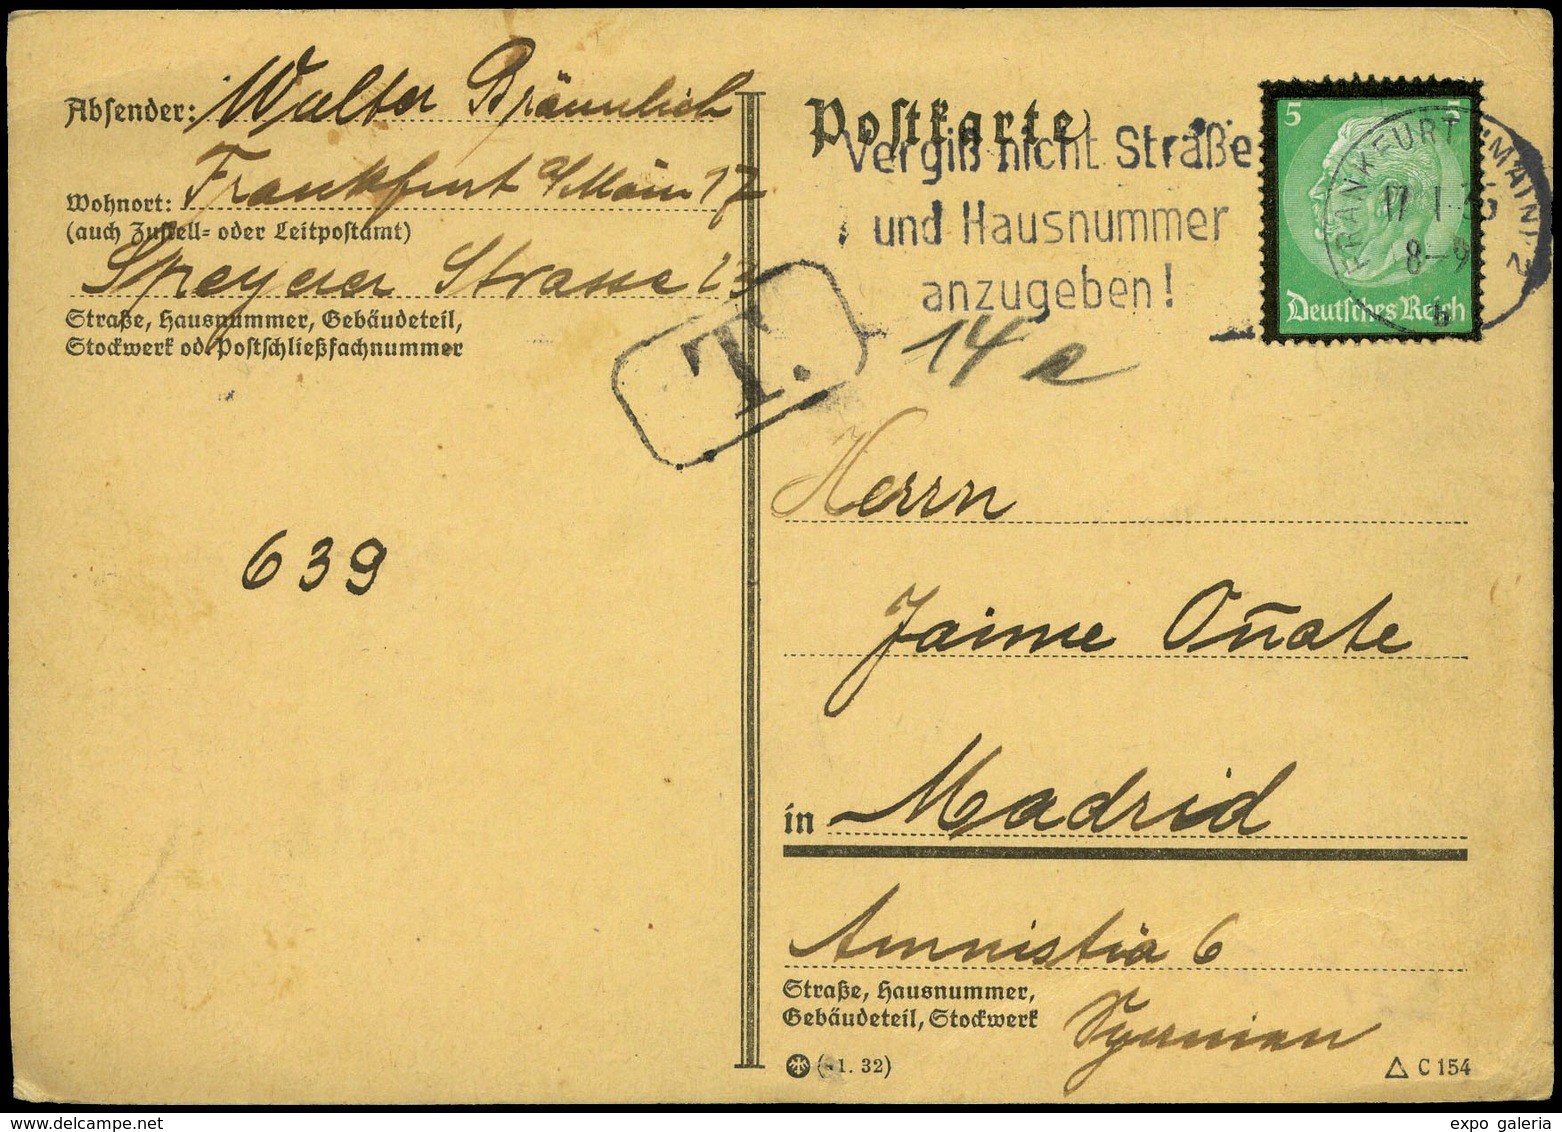 Absender: Walter Bräunlich
Wohnort: Frankfurt a/Main 17
(auch Zustell- oder Leitpostamt)
Speyerer Strasse 23
Straße, Hausnummer, Gebäudeteil,
Stockwerk od. Postschließfachnummer
639
T.
Postkarte
Vergiß nicht Straße
und Hausnummer
anzugeben!
14 a
5 5
Deutsches Reich
FRANKFURT (MAIN) 2
17.1.35
8-9
b
Herrn
Jaime Oñate
in Madrid
Amnistia 6
Straße, Hausnummer,
Gebäudeteil, Stockwerk
(1. 32)
C 154
expo galeria